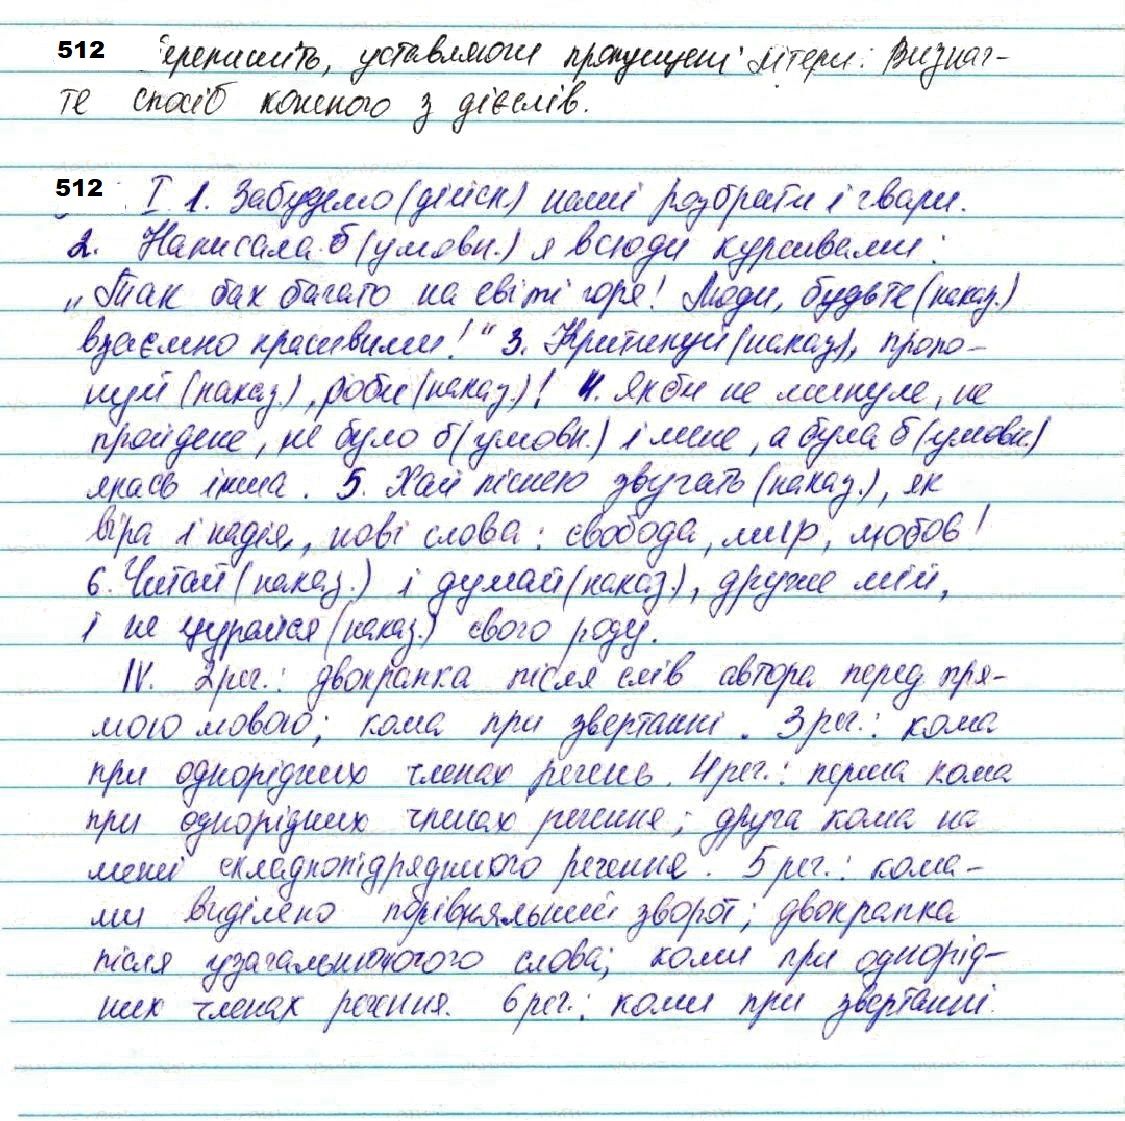 512 Перепишіть, уставляючи пропущені літери. Визнач-
те спосіб кожного з дієслів.
512 І 1. Забудемо (дійсн.) наші розбрати і звари.
2. Написала б (умовн.) я всюди курсивами:
„Так бах багато на світі горя! Люди, будьте (наказ.)
взаємно красивими!" 3. Критикуй (наказ.), пропо-
нуй (наказ.), роби (наказ.)! 4. Якби не минуле, не
пройдене, не було б (умовн.) і мене, а була б (умовн.)
якась інша. 5. Хай піснею звучать (наказ.), як
віра і надія, нові слова: свобода, мир, любов!
6. Читай (наказ.) і думай (наказ.), друже мій,
і не цурайся (наказ.) свого роду.
IV. 2 реч.: двокрапка після слів автора перед пря-
мою мовою; кома при звертанні. 3 реч.: кома
при однорідних членах речень. 4 реч.: перша кома
при однорідних членах речення; друга кома на
межі складнопідрядного речення. 5 реч.: кома-
ми виділено порівняльний зворот; двокрапка
після узагальнюючого слова; коми при однорід-
них членах речення. 6 реч.: коми при звертанні.